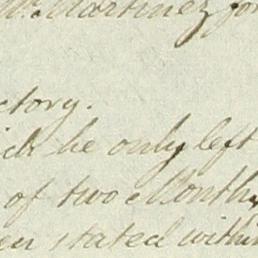 Mr. Martinez for
ctory.
ich he only left
of two Months
en stated within